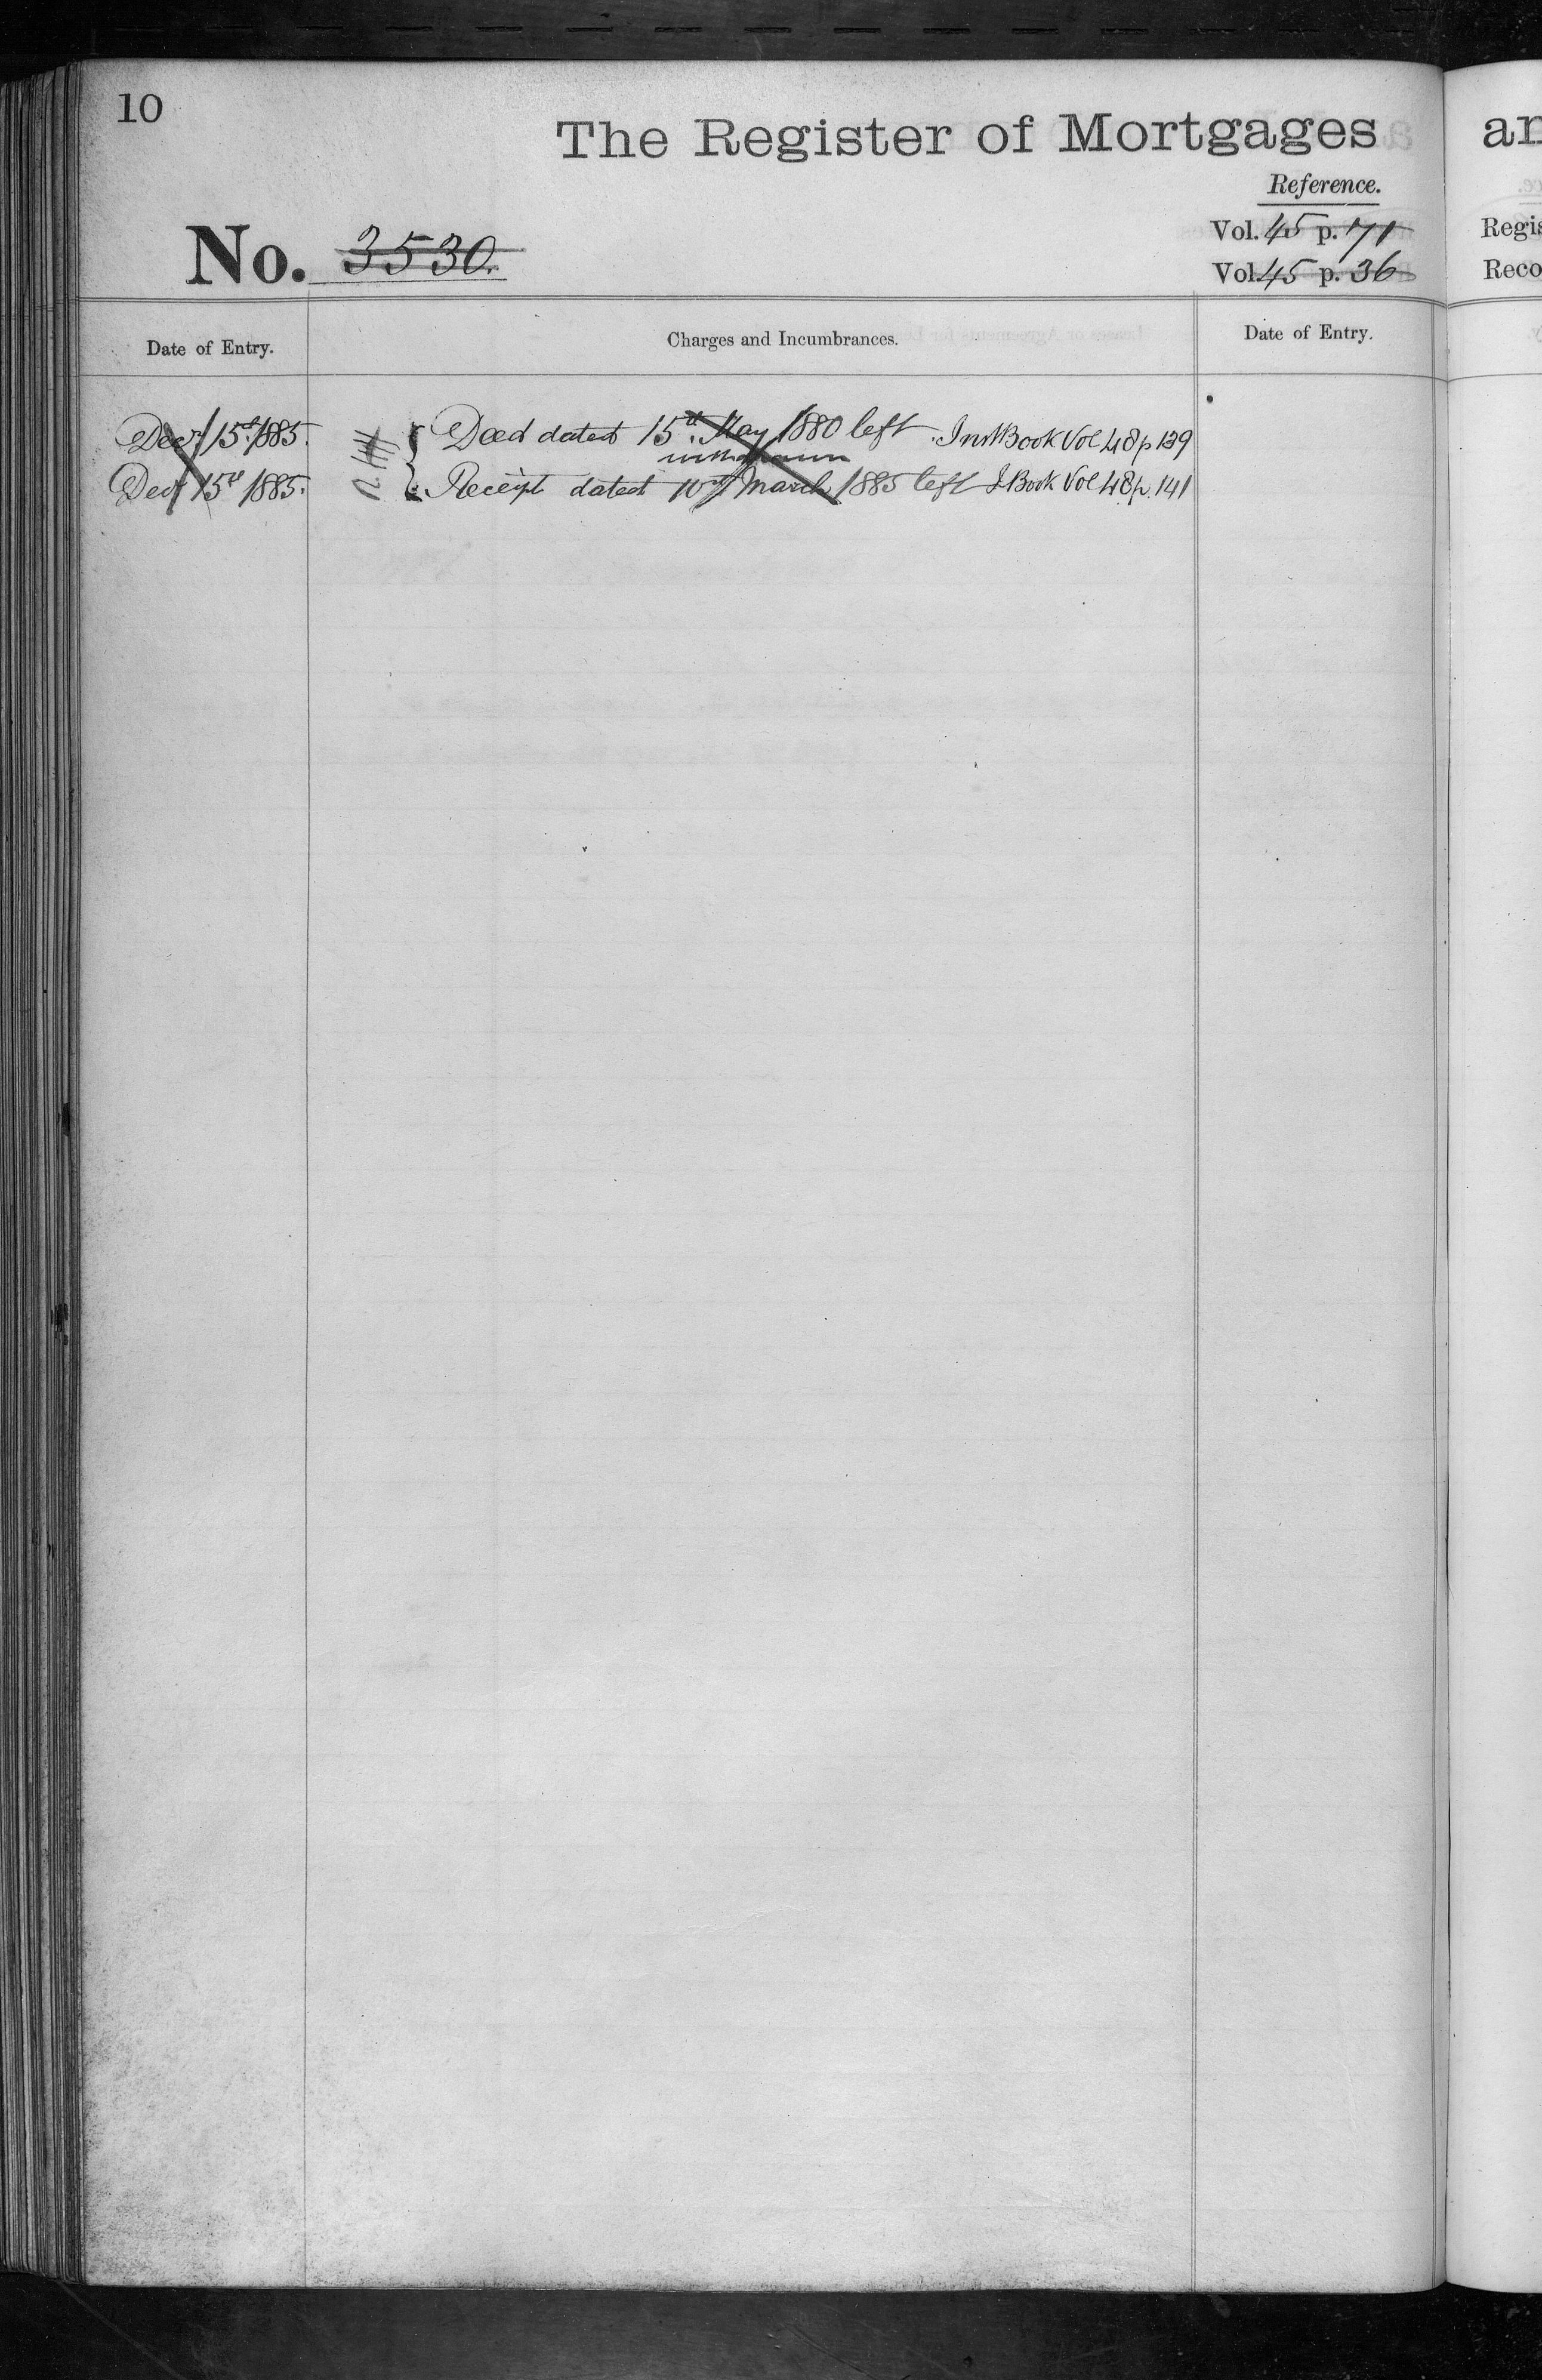 10
The Register of Mortgages
an
Reference.
No. 3530.
Vol. 45 p. 71
Regis
Vol. 45 p. 36
Reco
Date of Entry.
Charges and Incumbrances.
Date of Entry.
Decr 15th 1885. Deed dated 15th May 1880 left Inst Book Vol 48 p 139
withdrawn
Decr 15th 1885. Receipt dated 10th March 1885 left I Book Vol 48 p. 141